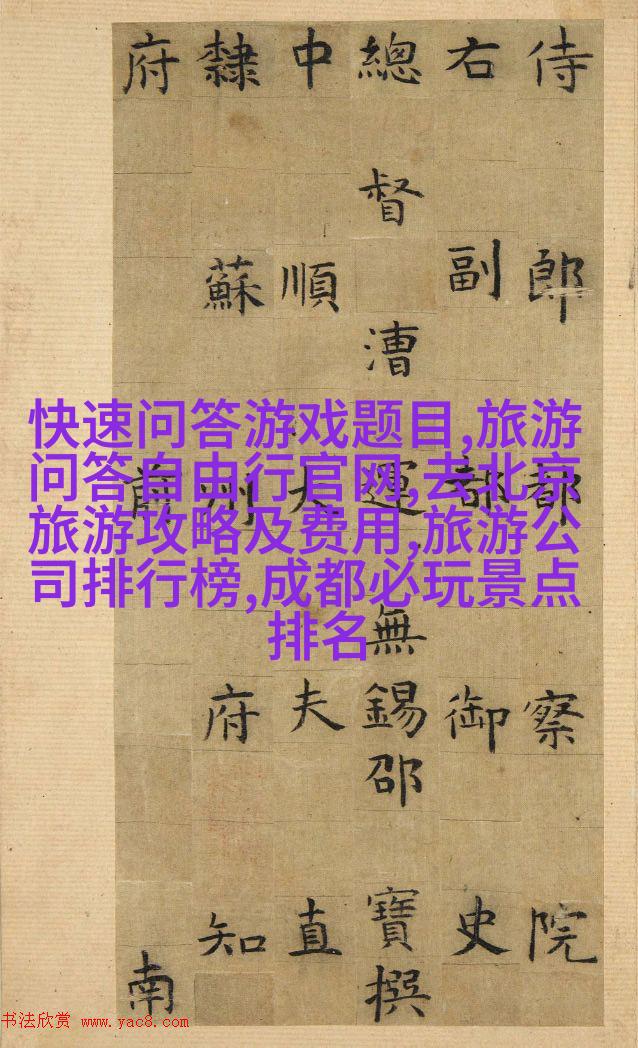 侍郎都察院
右副都御史
總督漕運無錫邵寶撰
中順大夫直
隸蘇州府知
府前南
快速问答游戏题目,旅游
问答自由行官网,去北京
旅游攻略及费用,旅游公
司排行榜,成都必玩景点
排名
书法欣赏 www.yac8.com